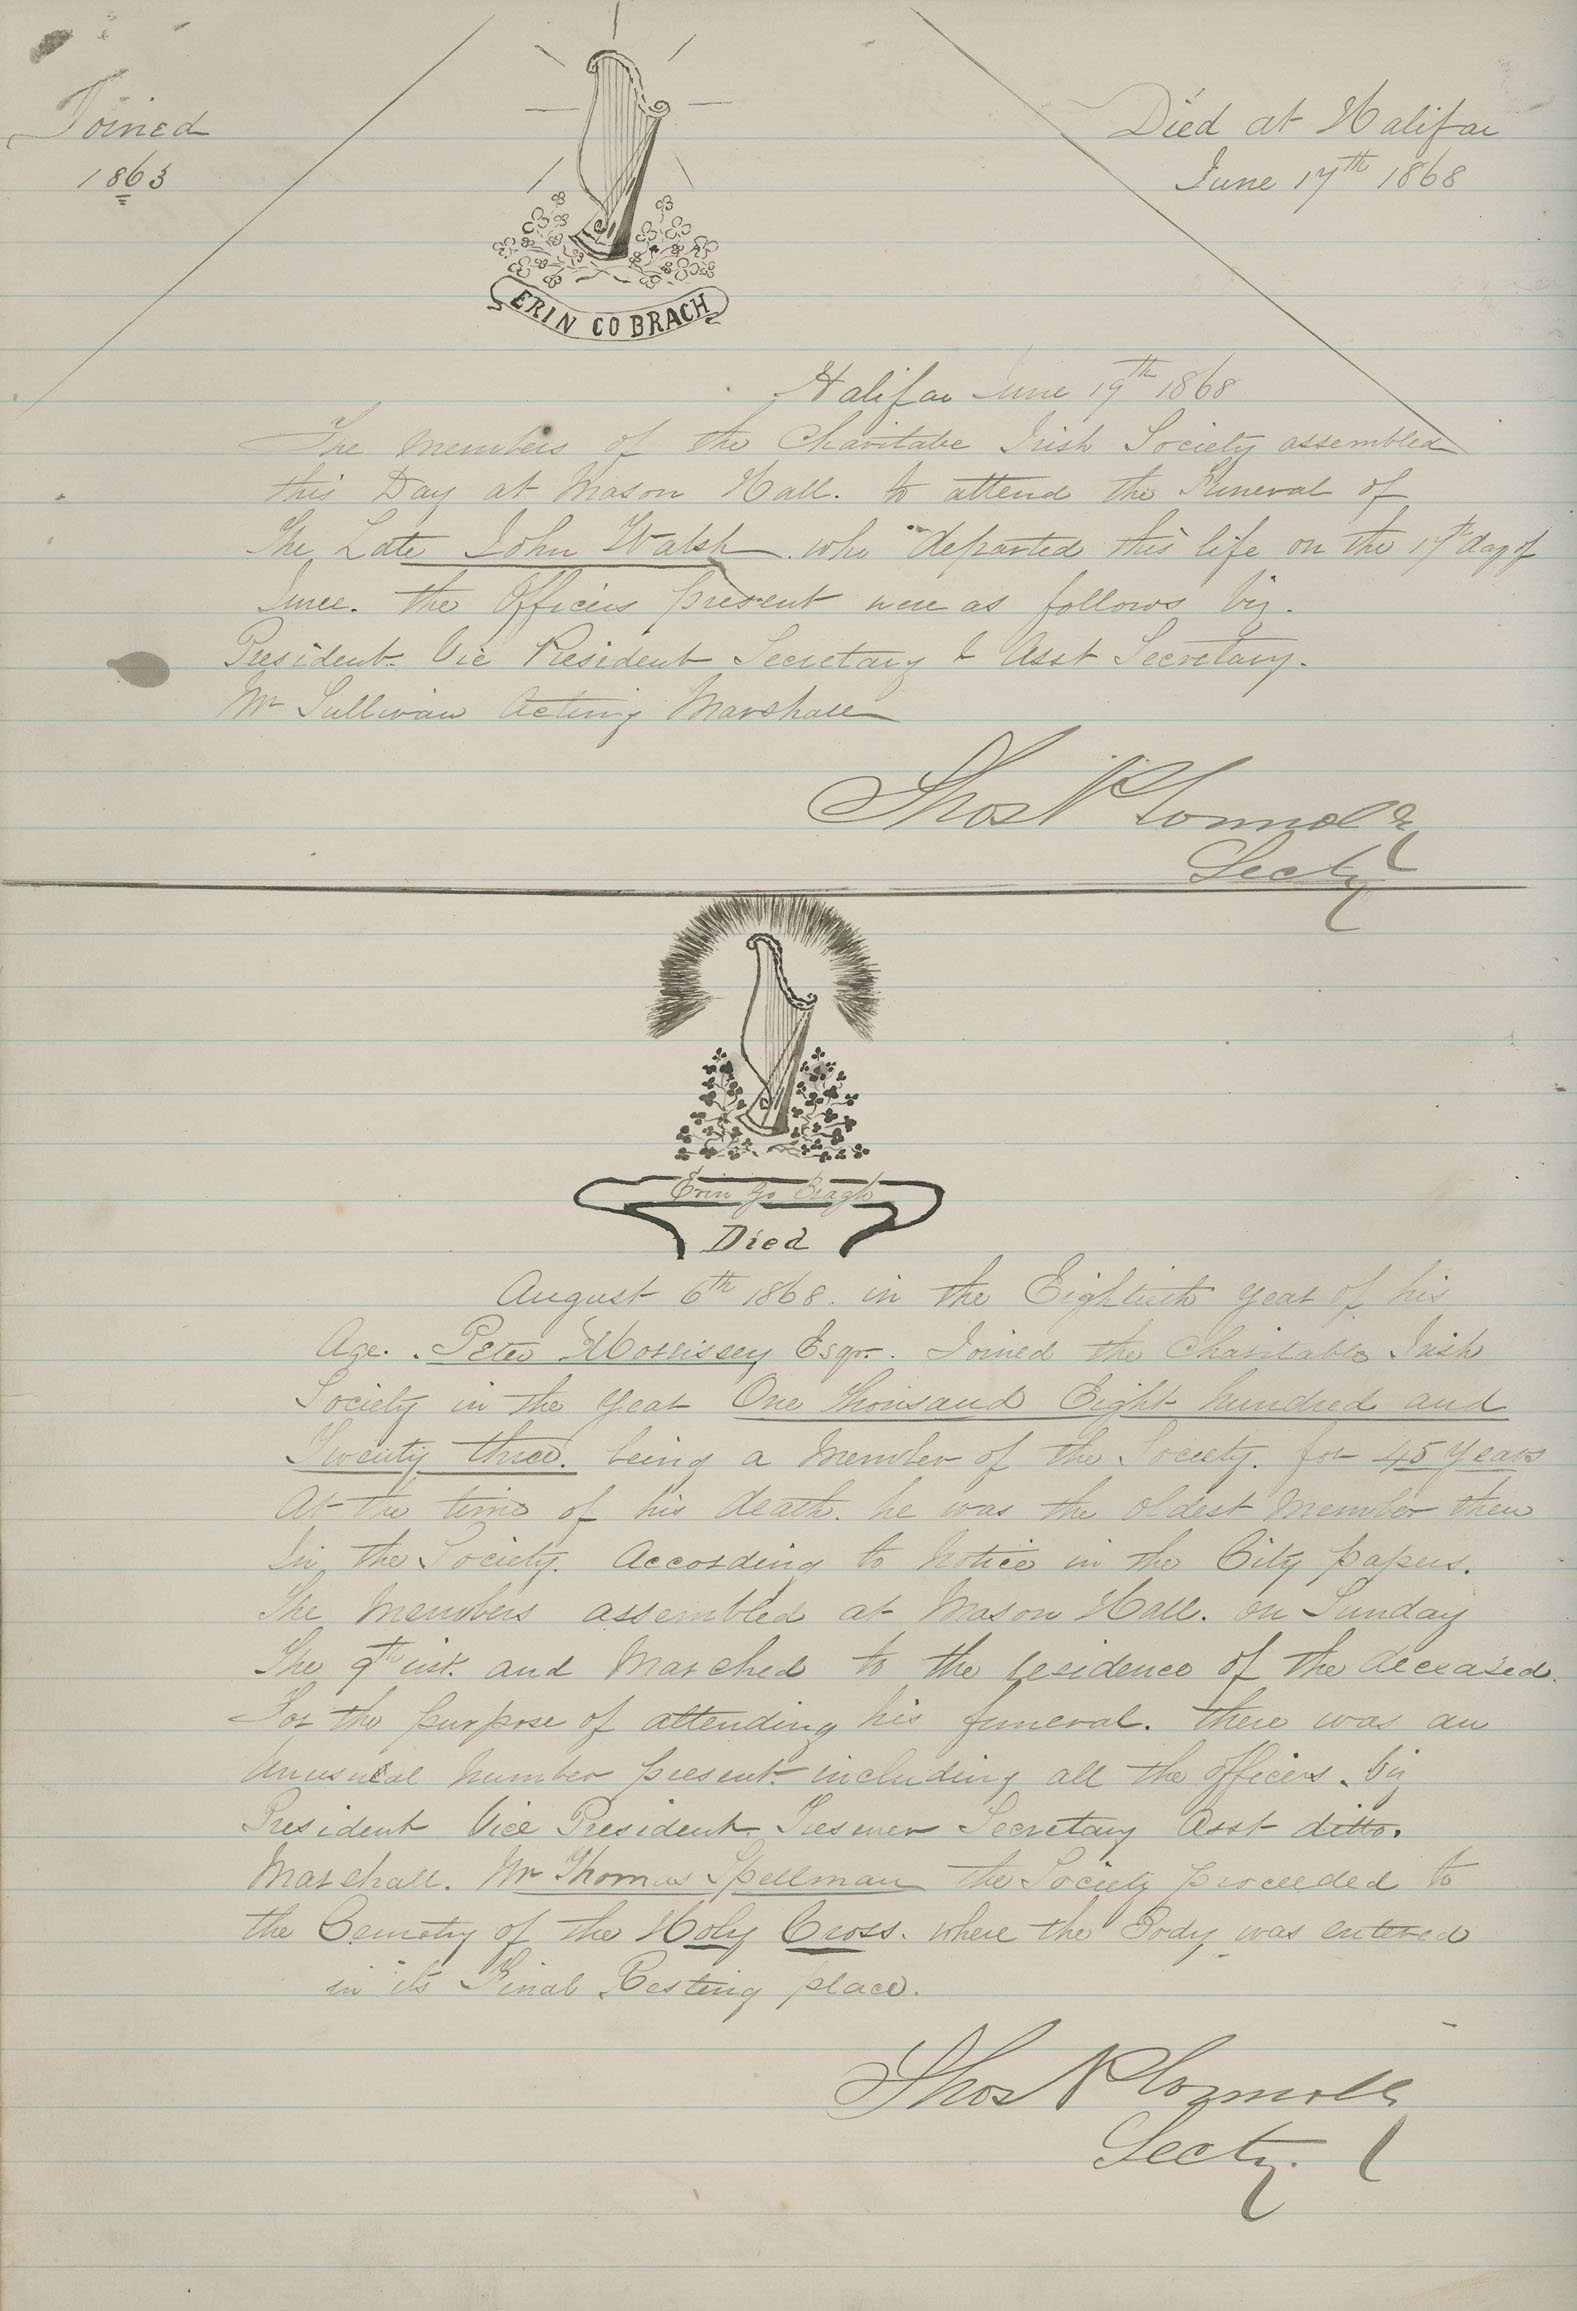 Joined
1863
Died at Halifax
June 17th 1868
ERIN GO BRAGH
Halifax June 19th 1868
The members of the Charitabe Irish Society assembled
this Day at Mason Hall. to attend the Funeral of
The Late John Walsh who departed this life on the 17th day of
June. the Officers present were as follows viz.
President Vice President Secretary & Asst Secretary.
Mr Sullivan Acting Marshall
Thos P Connolly
Secty
Erin go Bragh
Died
August 6th 1868. in the Eightieth year of his
Age. Peter Morrissey Esqr. Joined the Charitable Irish
Society in the year One Thousand Eight hundred and
Twenty three. being a Member of the Society. for 45 years
At the time of his death. he was the oldest Member then
In the Society. According to Notice in the City papers.
The Members assembled at Mason Hall. on Sunday
The 9th inst. and Marched to the residence of the deceased.
For the purpose of attending his funeral. there was an
Unusual number present including all the officers. viz
President Vice President Tresurer Secretary Asst ditto.
Marshall. Mr Thomas Spellman the Society proceeded to
the Cemetry of the Holy Cross. where the Body was entered
in its Final Resting place.
Thos P Connolly
Secty.